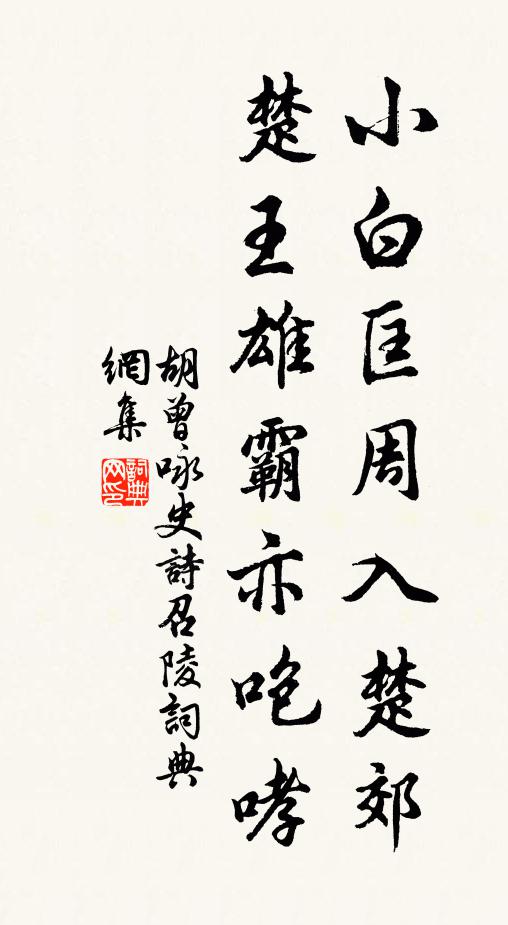 小白匡周入楚郊
楚王雄霸亦咆哮
胡曾咏史詩召陵詞典
網集
詞典網印